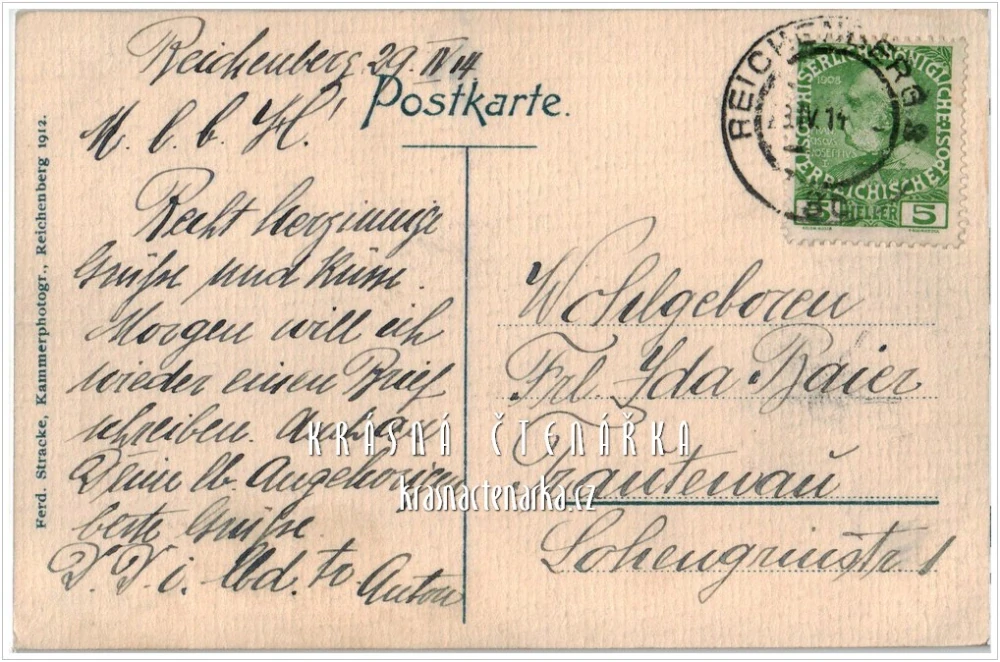 Reichenberg 29. IV 14
Postkarte.
M. l. b. H!
Recht herzinnige
Grüße und Küsse.
Morgen will ich
wieder einen Brief
schreiben. Auch an
Deine lb. Angehörigen
beste Grüße.
D. D. i. lbd. tr. Anton
Wohlgeboren
Frl. Ida Baier
Trautenau
Lohengrinstr 1
Ferd. Stracke, Kammerphotogr., Reichenberg 1912.
REICHENBERG
IV.14
KAISERLICHKÖNIGLICHE
ÖSTERREICHISCHE POST
1908
5 HELLER 5
KRÁSNÁ ČTENÁŘKA
krasnactenarka.cz